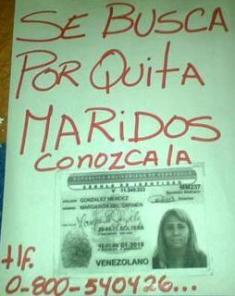 SE BUSCA
POR QUITA
MARIDOS
CONOZCA LA
REPUBLICA BOLIVARIANA DE VENEZUELA
CEDULA DE IDENTIDAD
MM237
GONZALEZ MENDEZ
MARGARITA DEL CARMEN
SOLTERA
VENEZOLANO
tlf.
0-800-540426...